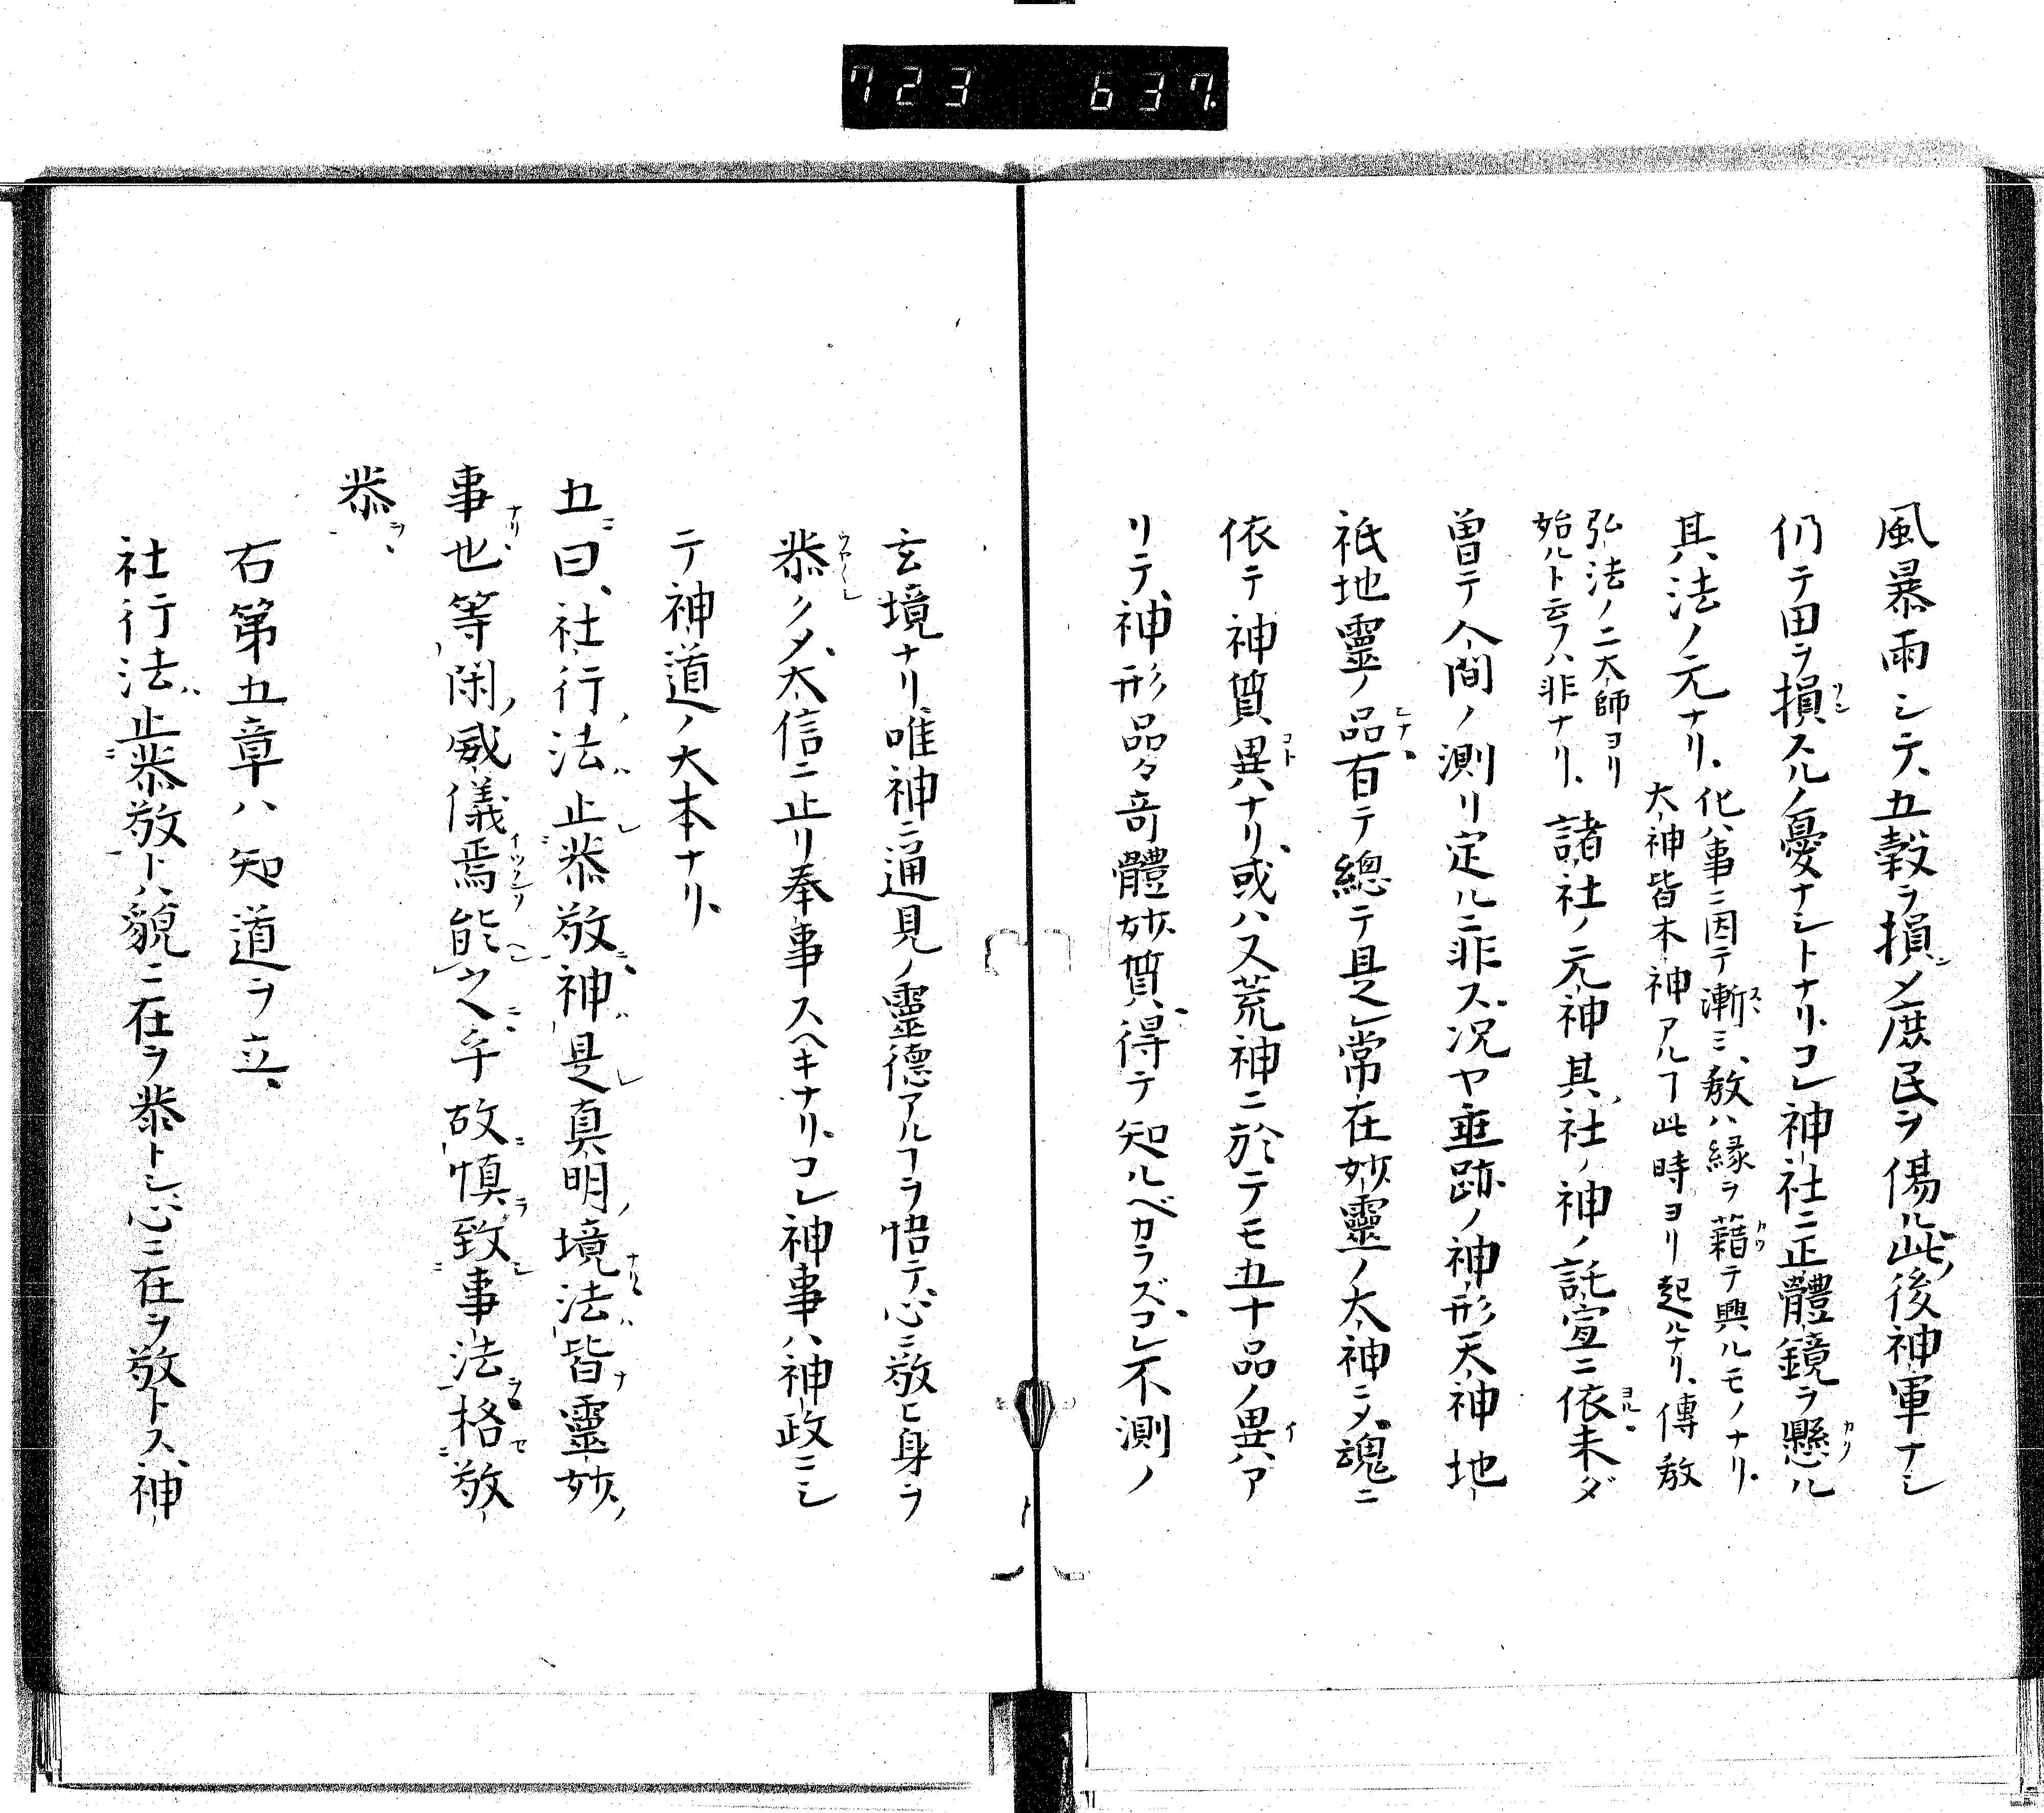 723 637.
風暴雨シテ、五穀ヲ損シメ庶民ヲ傷ル、此後神軍ナシ
仍テ田ヲ損スルノ憂ナシトナリ、コレ神社ニ正體鏡ヲ懸ル
其法ノ元ナリ、化ハ事ニ因テ漸ミ、教ハ縁ヲ藉テ興ルモノナリ、
大神皆本神アルヿ此時ヨリ起ルナリ、傳教
弘法ノ二大師ヨリ
始ルト云フハ非ナリ、諸社ノ元神其社ノ神ノ託宣ニ依、未ダ
曽テ人間ノ測リ定ルニ非ズ、况ヤ垂跡ノ神形天神地
祇地靈ノ品有テ總テ是レ常在妙靈ノ大神ニメ、魂ニ
依テ神質異ナリ、或ハ又荒神ニ於テモ五十品ノ異ハア
リテ、神形品々奇體妙質、得テ知ルベカラズ、コレ不測ノ
玄境ナリ、唯神ニ通見ノ靈德アルヿヲ悟テ、心ニ敬ヒ身ヲ
恭クメ、大信ニ止リ奉事スヘキナリ、コレ神事ハ神政ニシ
テ神道ノ大本ナリ、
五曰、社行法止恭敬神是真明境法皆靈妙
事也等閑威儀焉能之乎故慎致事法格敬
恭
右第五章ハ知道ヲ立、
社行法止恭敬トハ貌ニ在ヲ恭トシ、心ニ在ヲ敬トス、神